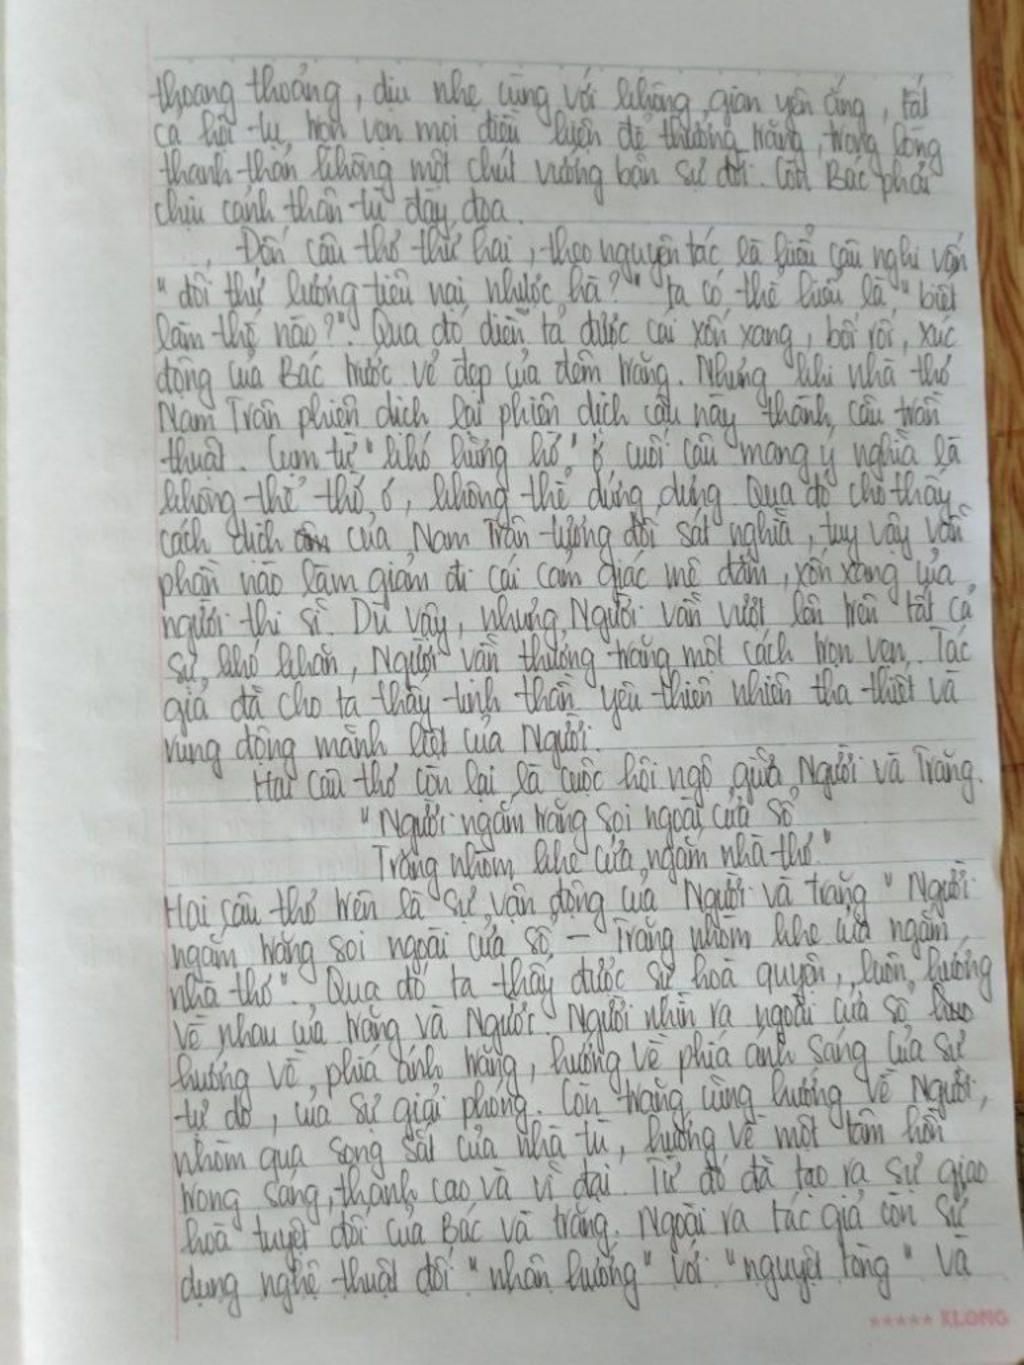 thoang thoảng, dịu nhẹ cùng với không gian yên ắng, tất
cả hội tụ trọn vẹn mọi điều kiện để thưởng trăng, trong lòng
thanh thản không một chút vướng bận sự đời. Còn Bác phải
chịu cảnh thân tù đày đọa.
Đến câu thơ thứ hai, theo nguyên tác là kiểu câu nghi vấn
"đối thử lương tiêu nại nhược hà?" ta có thể hiểu là "biết
làm thế nào?". Qua đó diễn tả được cái xốn xang, bối rối, xúc
động của Bác trước vẻ đẹp của đêm trăng. Nhưng khi nhà thơ
Nam Trân phiên dịch lại phiên dịch câu này thành câu trần
thuật. Cụm từ "khó hững hờ" ở cuối câu mang ý nghĩa là
không thể thờ ơ, không thể dửng dưng. Qua đó cho thấy
cách dịch của Nam Trân tương đối sát nghĩa, tuy vậy vẫn
phần nào làm giảm đi cái cảm giác mê đắm, xốn xang của
người thi sĩ. Dù vậy, nhưng Người vẫn vượt lên trên tất cả
sự khó khăn, Người vẫn thưởng trăng một cách trọn vẹn. Tác
giả đã cho ta thấy tinh thần yêu thiên nhiên tha thiết và
rung động mãnh liệt của Người.
Hai câu thơ còn lại là cuộc hội ngộ giữa Người và Trăng.
"Người ngắm trăng soi ngoài cửa sổ
Trăng nhòm khe cửa ngắm nhà thơ"
Hai câu thơ trên là sự vận động của Người và trăng "Người
ngắm trăng soi ngoài cửa sổ – Trăng nhòm khe cửa ngắm
nhà thơ". Qua đó ta thấy được sự hoà quyện, luôn hướng
về nhau của trăng và Người. Người nhìn ra ngoài cửa sổ
hướng về phía ánh trăng, hướng về phía ánh sáng của sự
tự do, của sự giải phóng. Còn trăng cũng hướng về Người,
nhòm qua song sắt của nhà tù, hướng về một tâm hồn
trong sáng, thanh cao và vĩ đại. Từ đó đã tạo ra sự giao
hoà tuyệt đối của Bác và trăng. Ngoài ra tác giả còn sử
dụng nghệ thuật đối "nhân hướng" với "nguyệt tòng" và
★★★★★ KLONG